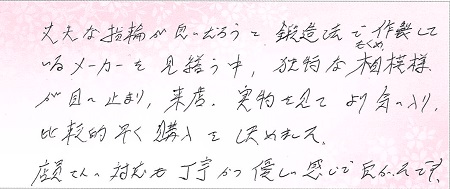 丈夫な指輪が良いだろうと鍛造法で作製して
いるメーカーを見繕う中、独特な杢目模様
が目に止まり、来店。実物を見てより気に入り、
比較的早く購入を決めました。
店員さんの対応も丁寧かつ優しい感じで良かったです。